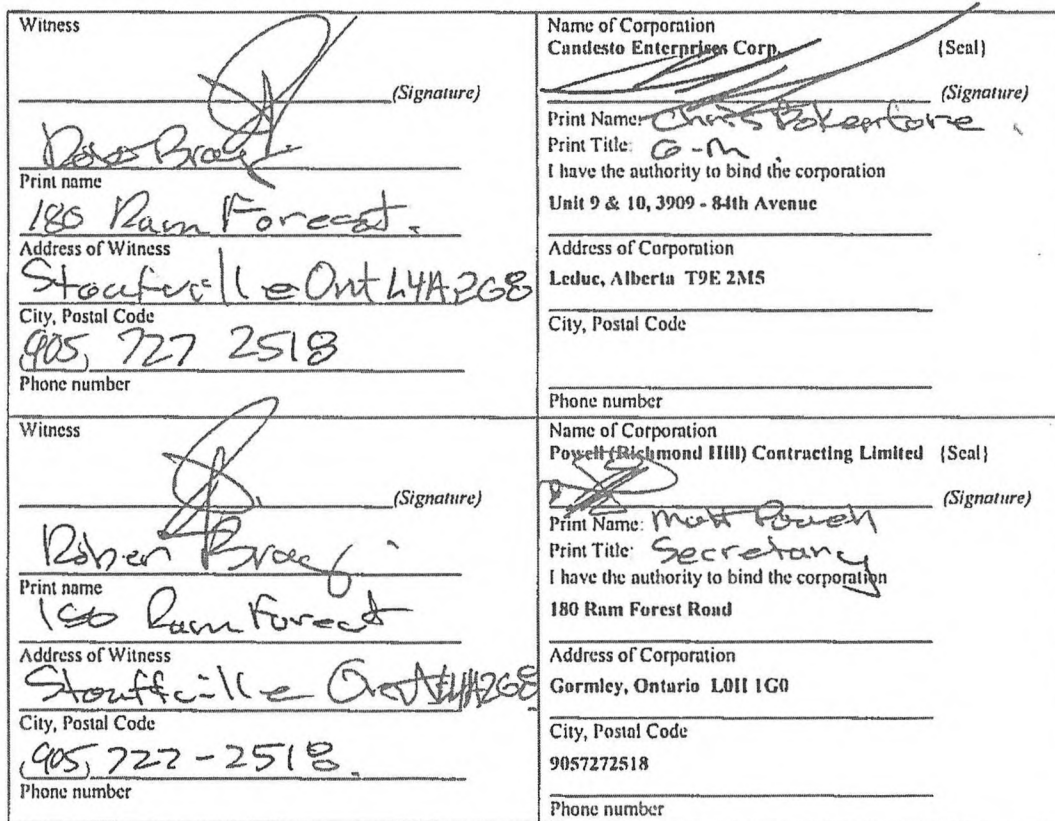 Witness
(Signature)
Print name
180 Ram Forest.
Address of Witness
Stouffville Ont L4A2G8
City, Postal Code
905, 727 2518
Phone number
Name of Corporation
Candesto Enterprises Corp. {Seal}
(Signature)
Print Name: Chris
Print Title: G-M
I have the authority to bind the corporation
Unit 9 & 10, 3909 - 84th Avenue
Address of Corporation
Leduc, Alberta T9E 2M5
City, Postal Code
Phone number
Witness
(Signature)
Print name
180 Ram Forest
Address of Witness
Stouffville Ont L4A2G8
City, Postal Code
905, 727-2518
Phone number
Name of Corporation
Powell (Richmond Hill) Contracting Limited {Seal}
(Signature)
Print Name: Matt Powell
Print Title: Secretary
I have the authority to bind the corporation
180 Ram Forest Road
Address of Corporation
Gormley, Ontario L0H 1G0
City, Postal Code
9057272518
Phone number